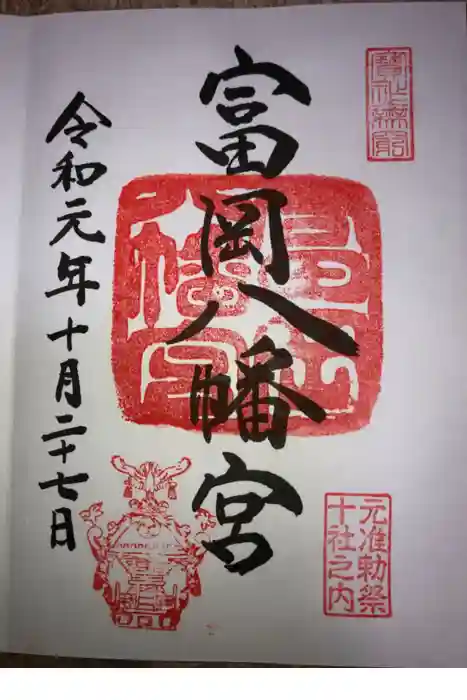 富岡八幡宮
元准勅祭
十社之内
令和元年十月二十七日